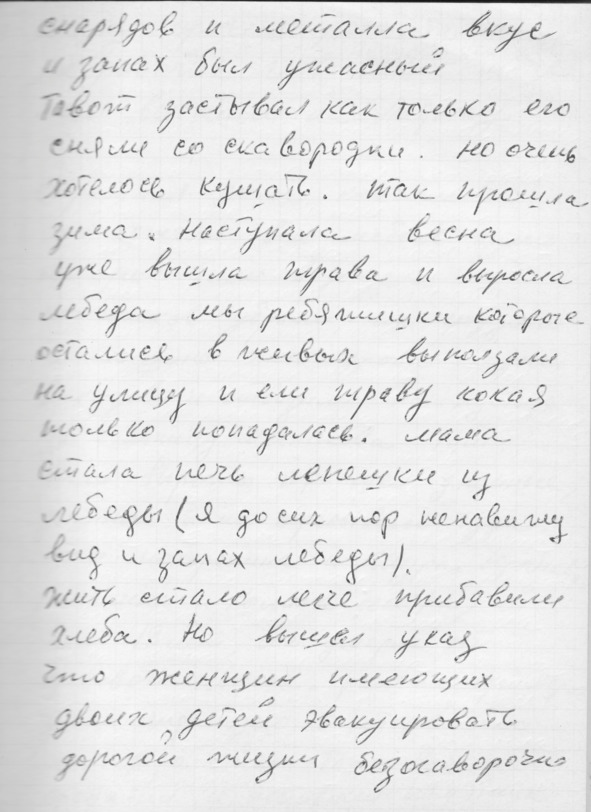 снарядов и металла вкус
и запах был ужасный
Тавот застывал как только его
сняли со скавородки. но очень
хотелось кушать. так прошла
зима. Наступала весна
уже вышла трава и выросла
лебеда мы ребятишки которые
остались в живых выползали
на улицу и ели траву кокая
только попадалась. мама
стала печь лепешки из
лебеды (я до сих пор ненавижу
вид и запах лебеды).
жить стало легче прибавили
хлеба. Но вышел указ
что женщин имеющих
двоих детей эвакуировать
дорогой жизни безогаворочно